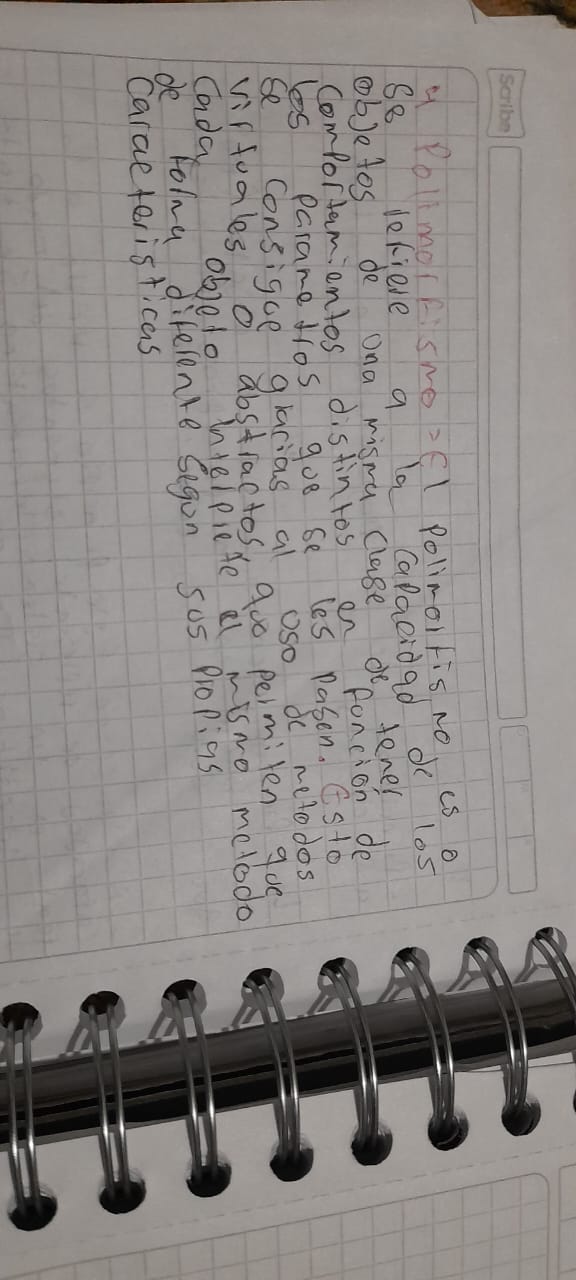 Scribe
4 Polimorfismo = El polimorfismo es o
se refiere a la capacidad de los
objetos de una misma clase de tener
comportamientos distintos en función de
los parametros que se les pasen. Esto
se consigue gracias al uso de metodos
virtuales o abstractos, que permiten que
cada objeto interprete el mismo metodo
de forma diferente segun sus propias
caracteristicas